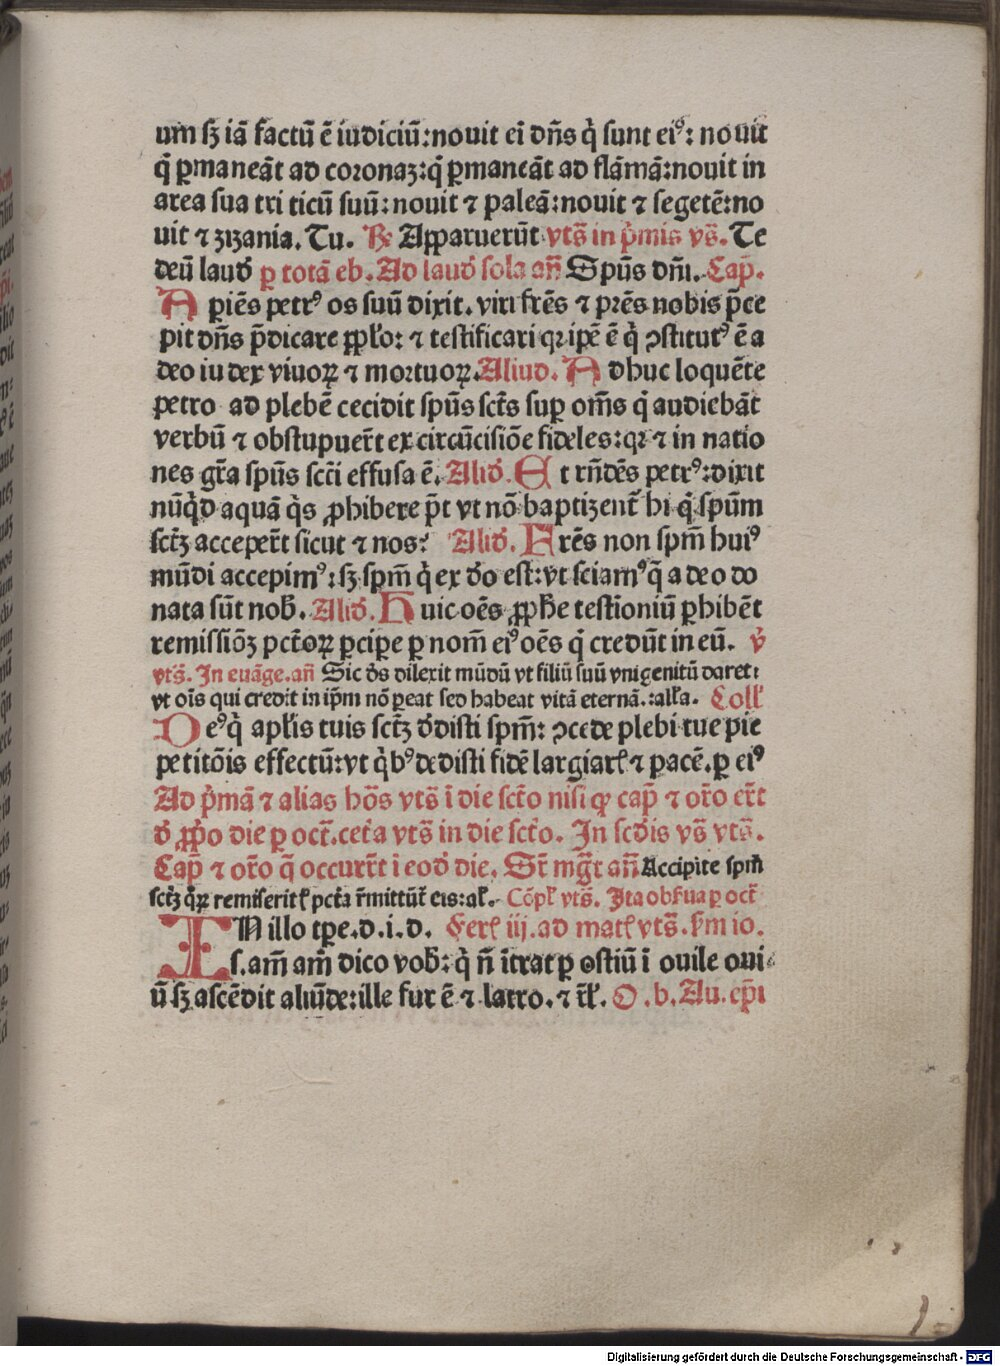 um sꝫ iā factū ē iudiciū: nouit eī dñs q̇ sunt eiꝰ: nouit
q̄ ꝑmaneāt ad coronaꝫ: q̄ ꝑmaneāt ad flāmā: nouit in
area sua tri ticū suū: nouit ⁊ paleā: nouit ⁊ segetē: no
uit ⁊ zizania. Tu. ℞ Apparuerūt vts̄ in p̄mis vs̄. Te
deū laud̓ ꝑ totā eb. Ad laud̓ sola añ Spūs dm̄i. Cap̄.
Apiēs petrꝰ os suū dixit. viri frēs ⁊ prēs nobis p̄ce
pit dñs p̄dicare pplo: ⁊ testificari qꝛ ipē ē q̇ ꝯstitutꝰ ē a
deo iudex viuoꝝ ⁊ mortuoꝝ. Aliud. Adhuc loquēte
petro ad plebē cecidit spūs scts̄ sup om̄s q̇ audiebāt
verbū ⁊ obstupuer̄t ex circūcisiōe fideles: qꝛ ⁊ in natio
nes gr̄a spūs sc̄ti effusa ē. Alid̓. Et rn̄dēs petrꝰ: dixit
nūq̇d aquā q̇s ꝓhibere p̄t vt nō baptizent̄ hi q̇ spūm
sctꝫ acceper̄t sicut ⁊ nos? Alid̓. Frēs non spm̄ huiꝰ
mūdi accepimꝰ: sꝫ spm̄ q̇ ex d̓o est: vt sciamꝰ q̄ a deo do
nata sūt nob̄. Alid̓. Huic oēs ꝓphe testīoniū ꝑhibēt
remissiōꝫ pctōꝝ ꝑcipe ꝑ nom̄ eiꝰ oēs q̇ credūt in eū. v̓
vts̄. In euāge. añ Sic d̓s dilexit mūdū vt filiū suū vnigenitū daret:
vt oīs qui credit in ip̄m nō ꝑeat sed habeat vitā eternā.: alla. Coll̓
Deꝰ q̇ aplis tuis sctꝫ d̓disti spm̄: ꝯcede plebi tue pie
petitōis effectū: vt q̇bꝰ dedisti fidē largiar̓ ⁊ pacē. ꝑ eiꝰ
Ad p̄mā ⁊ alias hōs vts̄ ī die sctō nisi ꝙ cap̄ ⁊ orō er̄t
d̓ ꝓpo die ꝑ oct̄. cet̄a vts̄ in die sctō. In scd̓is vs̄ vts̄.
Cap̄ ⁊ orō q̄ occurr̄t ī eod̓ die. Sr̄ mḡt añ Accipite spm̄
sctꝫ q̄ꝝ remiserit̓ pctā r̄mittūt̄ eis: al̓. Cōpl̓ vts̄. Ita obs̓ua ꝑ oct̄
IN illo tꝑe. d. i. d. Fer̓ iij. ad mat̓ vts̄. s̓m io.
s. am̄ am̄ dico vob̄: q̇ n̄ ītrat ꝑ ostiū ī ouile oui
ū sꝫ ascēdit aliūde: ille fur ē ⁊ latro. ⁊ r̄l̓. O. b. Au. ep̄i
Digitalisierung gefördert durch die Deutsche Forschungsgemeinschaft - DFG